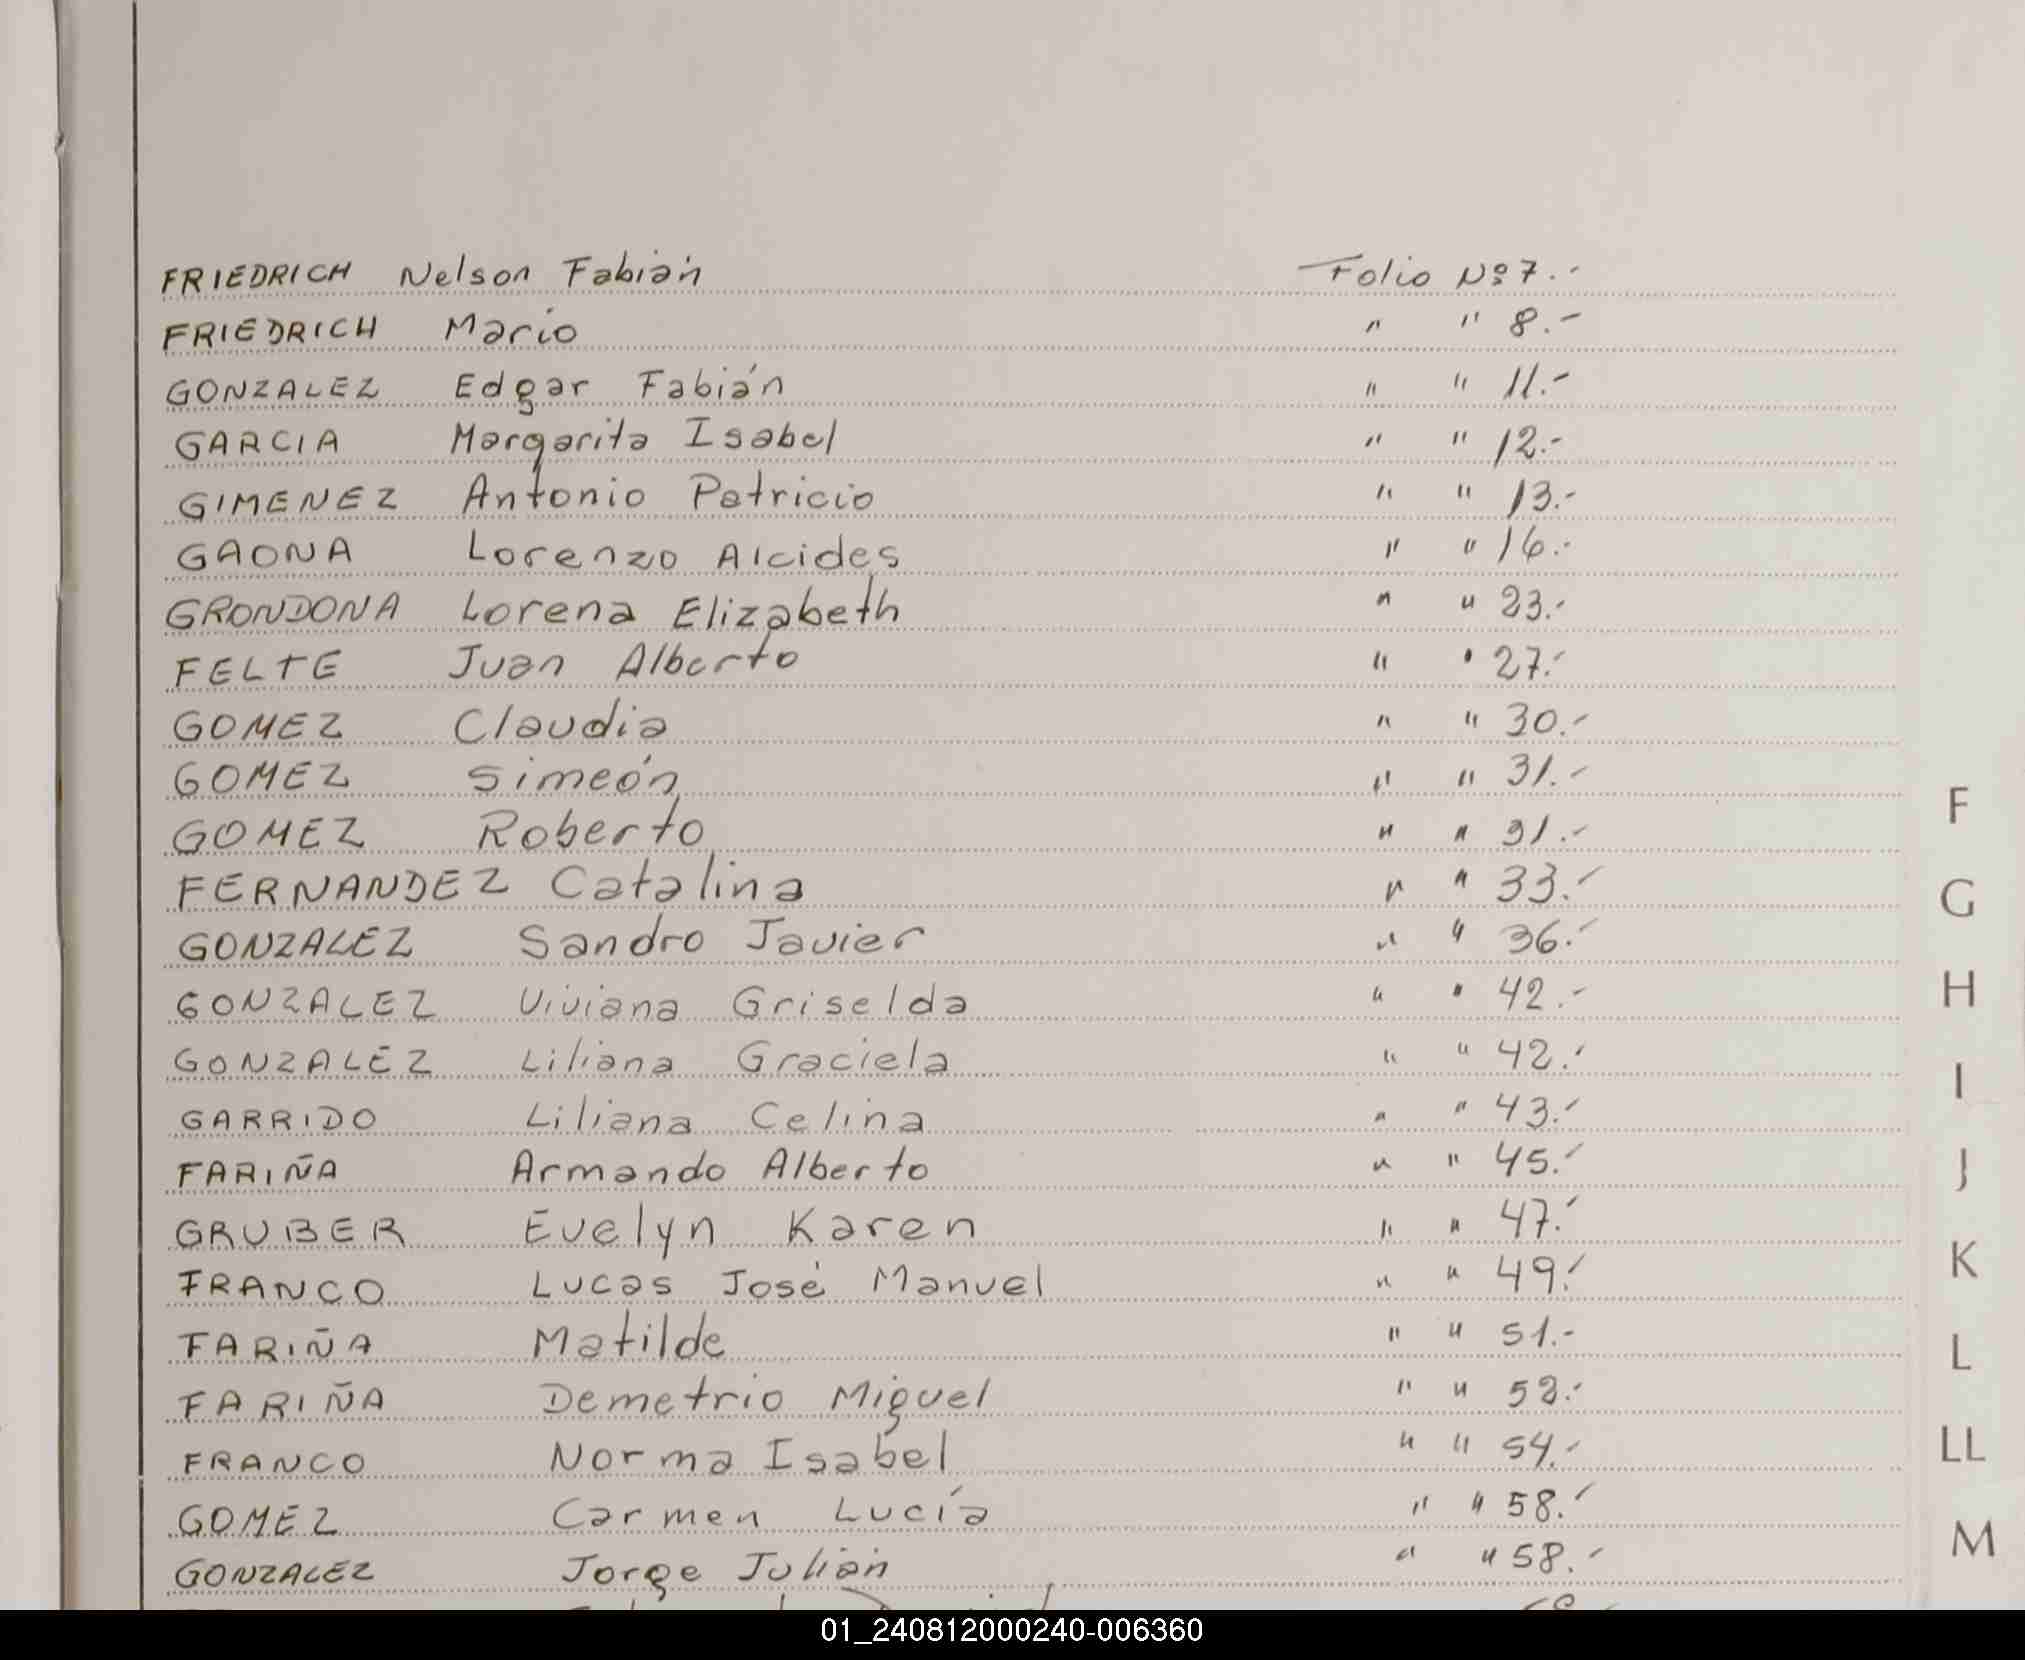 FRIEDRICH Nelson Fabián Folio Nº 7.-
FRIEDRICH Mario " " 8.-
GONZALEZ Edgar Fabián " " 11.-
GARCIA Margarita Isabel " " 12.-
GIMENEZ Antonio Patricio " " 13.-
GAONA Lorenzo Alcides " " 16.-
GRONDONA Lorena Elizabeth " " 23.-
FELTE Juan Alberto " " 27.-
GOMEZ Claudia " " 30.-
GOMEZ Simeón " " 31.-
GOMEZ Roberto " " 31.-
FERNANDEZ Catalina " " 33.-
GONZALEZ Sandro Javier " " 36.-
GONZALEZ Viviana Griselda " " 42.-
GONZALEZ Liliana Graciela " " 42.-
GARRIDO Liliana Celina " " 43.-
FARIÑA Armando Alberto " " 45.-
GRUBER Evelyn Karen " " 47.-
FRANCO Lucas José Manuel " " 49.-
FARIÑA Matilde " " 51.-
FARIÑA Demetrio Miguel " " 52.-
FRANCO Norma Isabel " " 54.-
GOMEZ Carmen Lucía " " 58.-
GONZALEZ Jorge Julián " " 58.-
F
G
H
I
J
K
L
LL
M
01_240812000240-006360